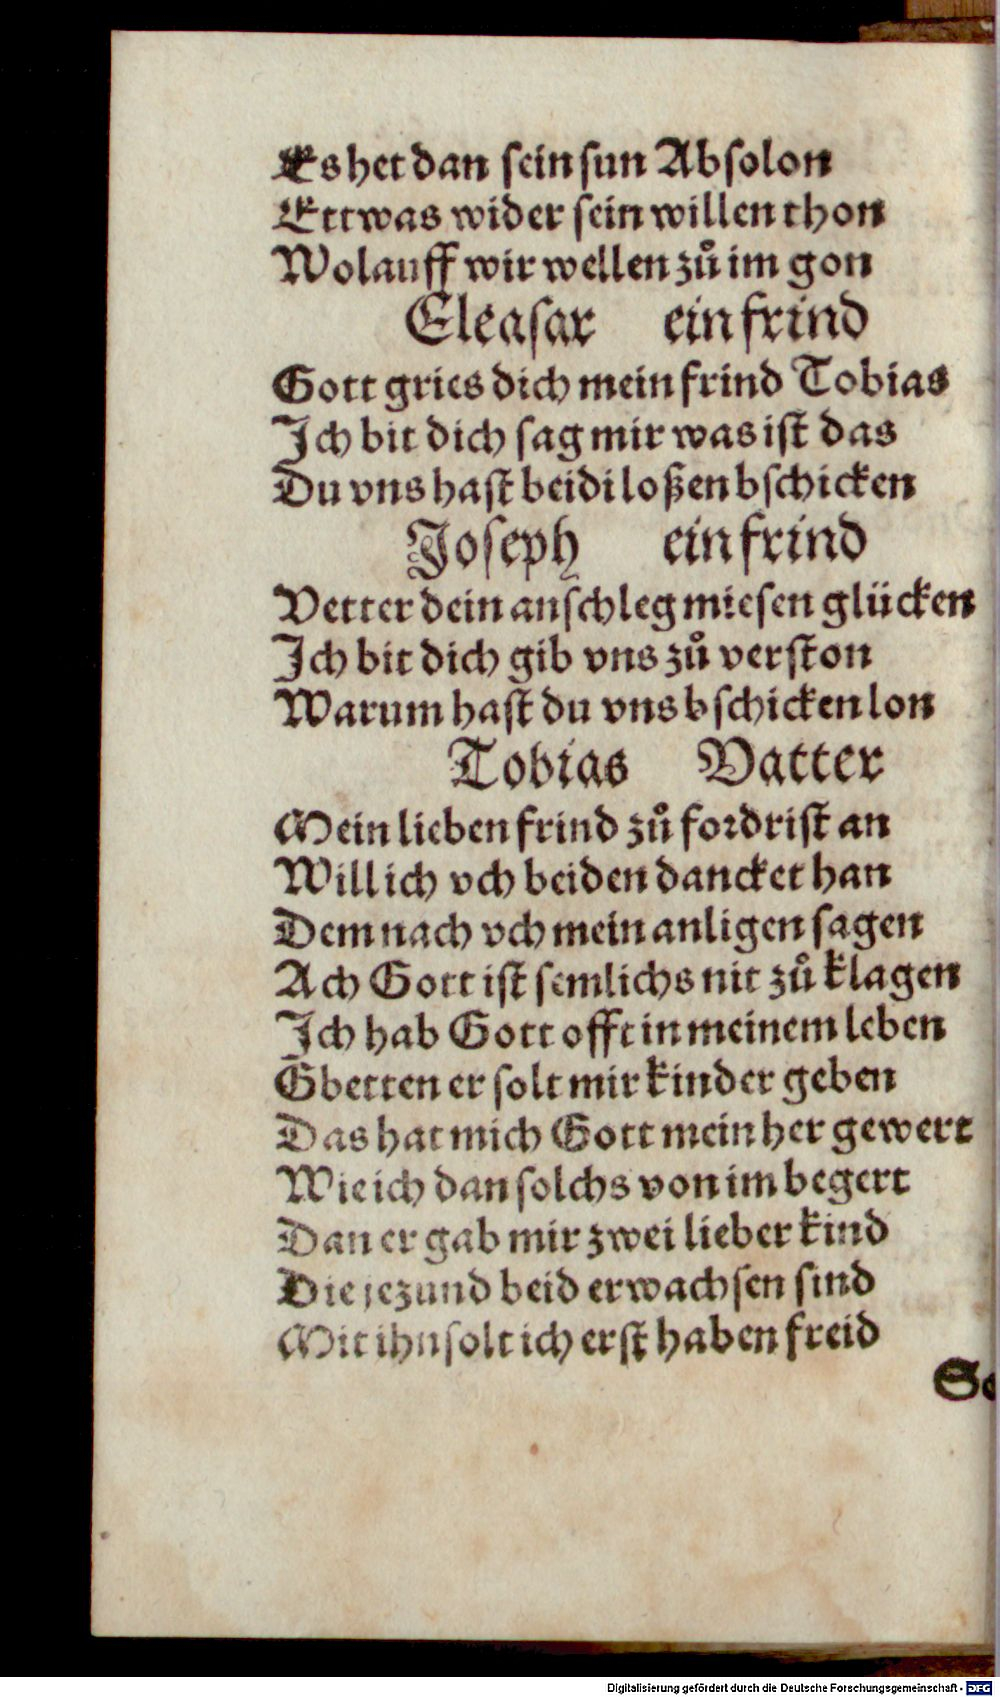 Es het dan sein sun Absolon
Ettwas wider sein willen thon
Wolauff wir wellen zů im gon
Eleasar ein frind
Gott gries dich mein frind Tobias
Ich bit dich sag mir was ist das
Du vns hast beidi loßen bschicken
Joseph ein frind
Vetter dein anschleg miesen glücken
Ich bit dich gib vns zů verston
Warum hast du vns bschicken lon
Tobias Vatter
Mein lieben frind zů fordrist an
Will ich vch beiden dancket han
Dem nach vch mein anligen sagen
Ach Gott ist semlichs nit zů klagen
Ich hab Gott offt in meinem leben
Gbetten er solt mir kinder geben
Das hat mich Gott mein her gewert
Wie ich dan solchs von im begert
Dan er gab mir zwei lieber kind
Die jezund beid erwachsen sind
Mit ihn solt ich erst haben freid
Digitalisierung gefördert durch die Deutsche Forschungsgemeinschaft - DFG